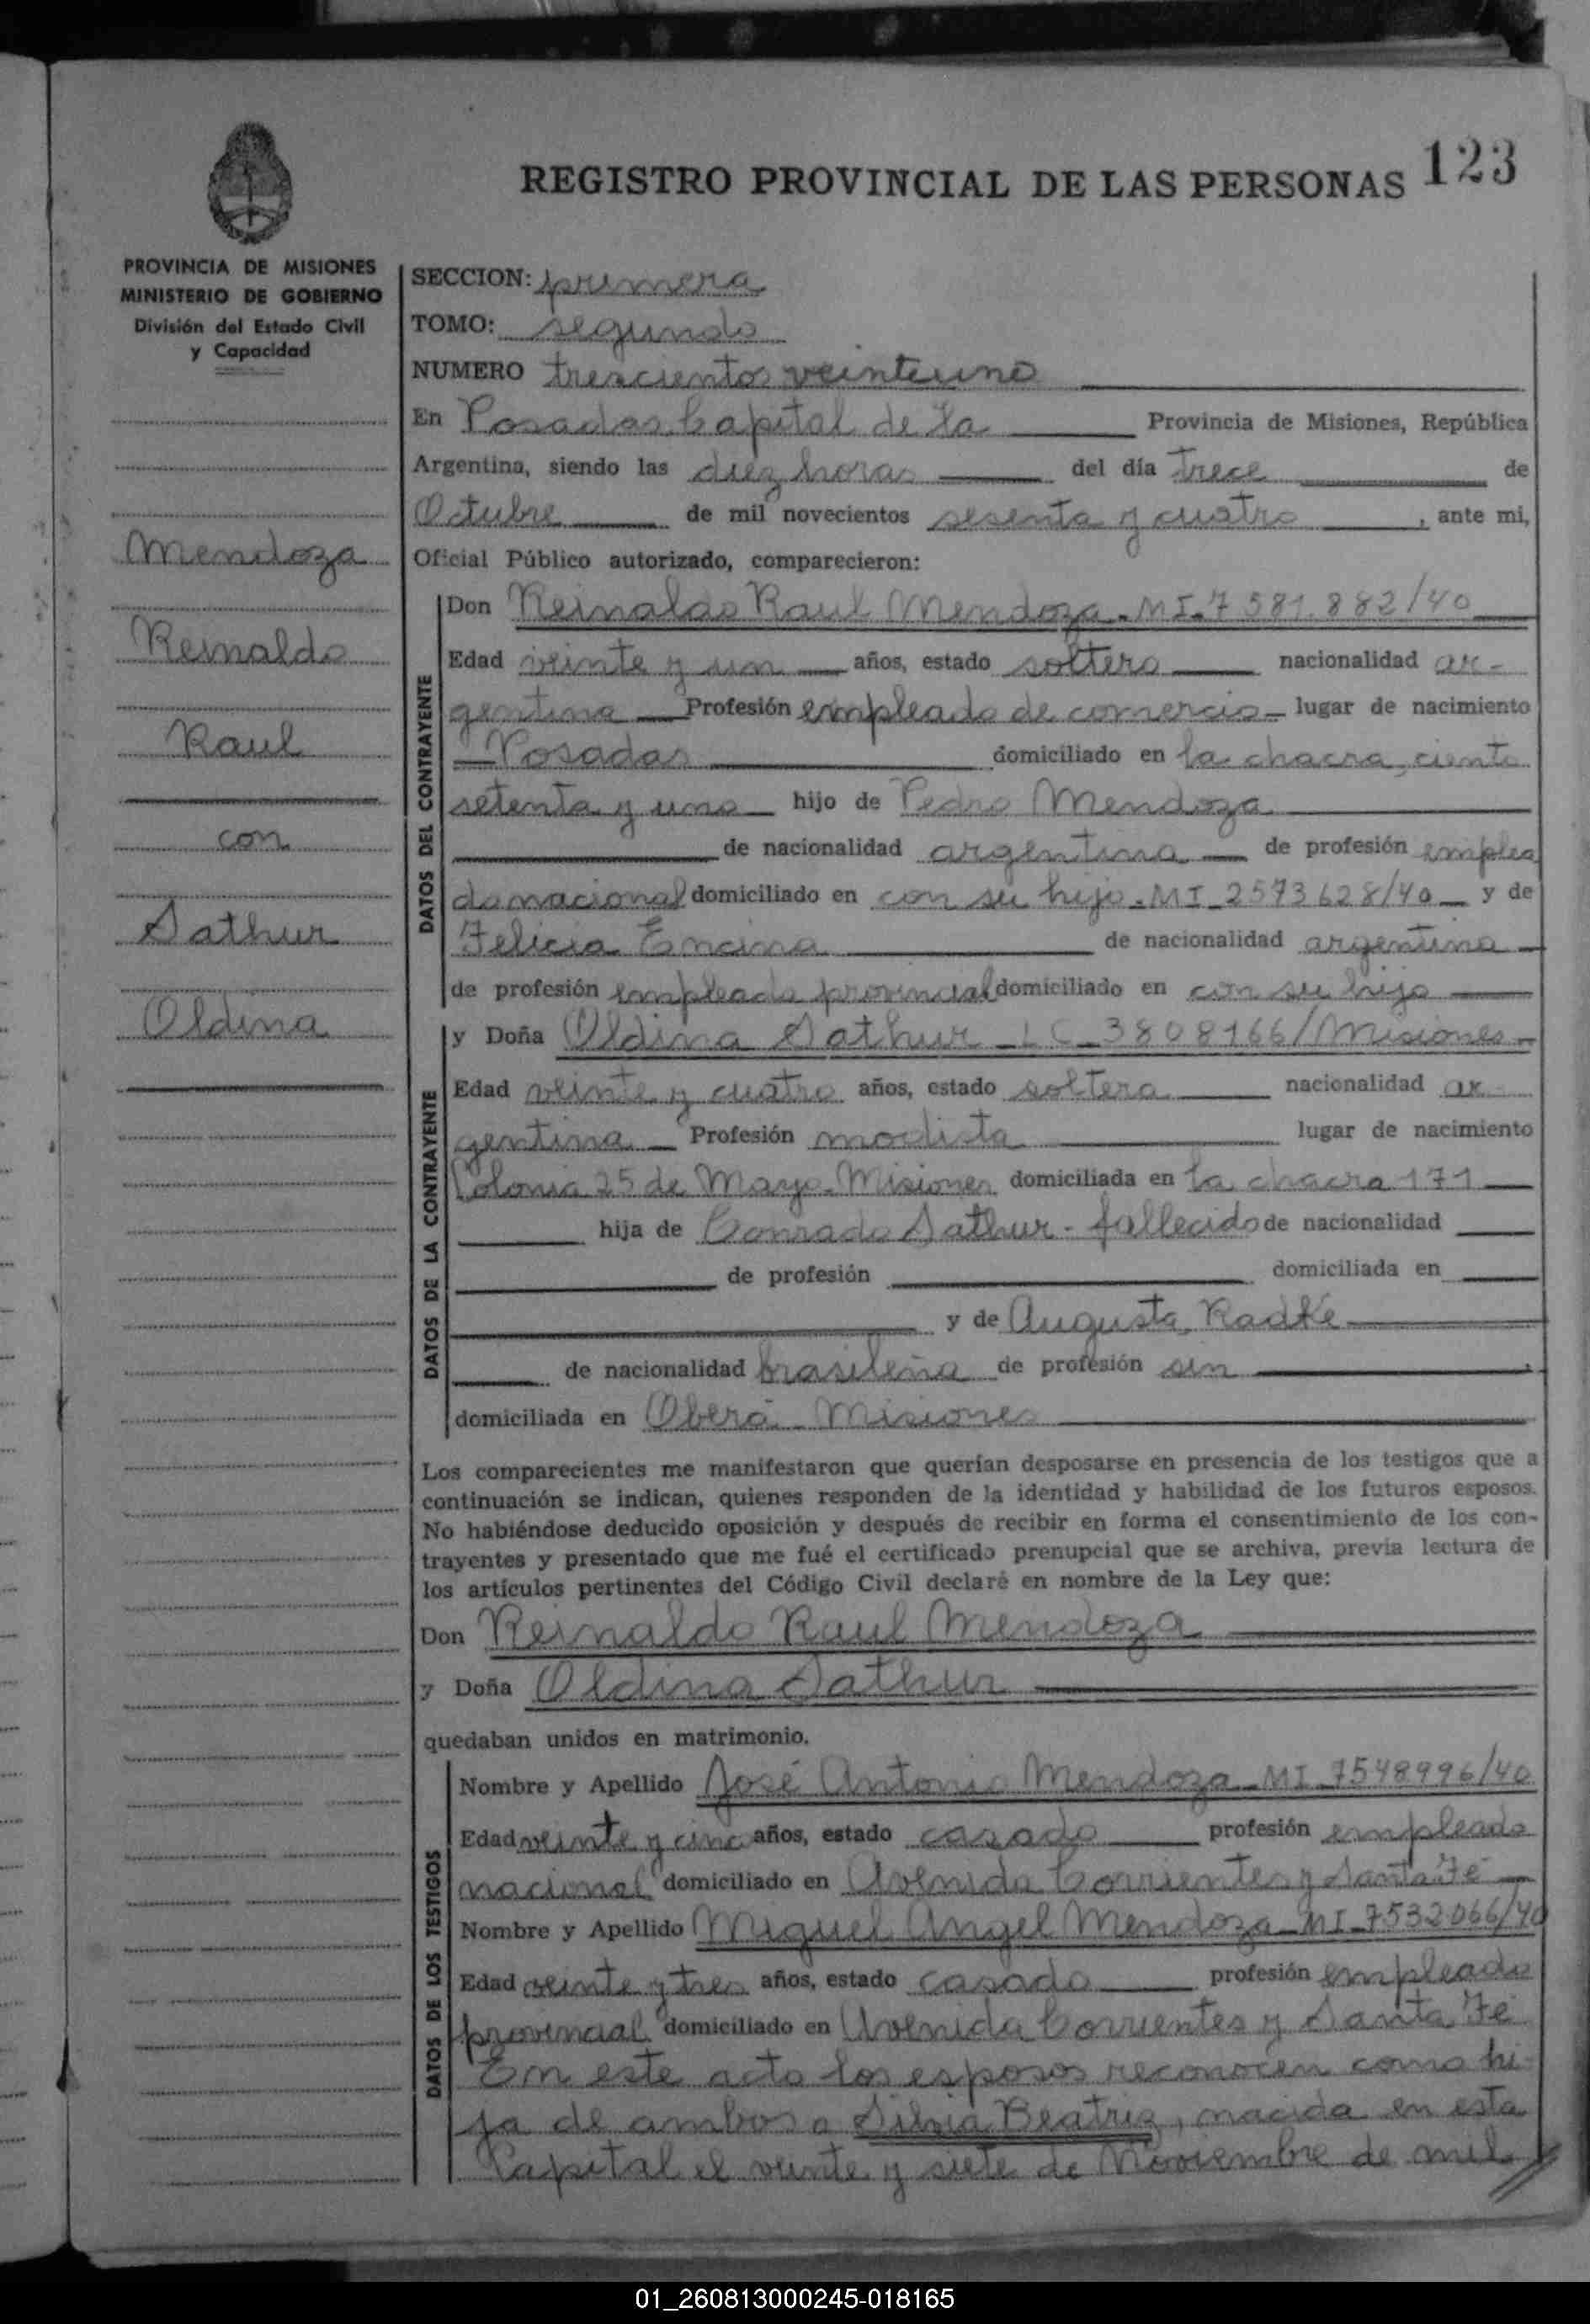 REGISTRO PROVINCIAL DE LAS PERSONAS 123
PROVINCIA DE MISIONES
MINISTERIO DE GOBIERNO
División del Estado Civil
y Capacidad
Mendoza
Reinaldo
Raul
con
Sathur
Oldina
SECCION: primera
TOMO: segundo
NUMERO trescientos veinteuno
En Posadas Capital de la Provincia de Misiones, República
Argentina, siendo las diez horas del día trece de
Octubre de mil novecientos sesenta y cuatro, ante mi,
Oficial Público autorizado, comparecieron:
DATOS DEL CONTRAYENTE
Don Reinaldo Raul Mendoza - MI - 7581.882/40
Edad veinte y un años, estado soltero nacionalidad ar-
gentina Profesión empleado de comercio - lugar de nacimiento
Posadas domiciliado en la chacra, ciento
setenta y uno hijo de Pedro Mendoza
de nacionalidad argentina de profesión emplea
do nacional domiciliado en con su hijo - MI - 2573628/40 y de
Felicia Encina de nacionalidad argentina
de profesión empleada provincial domiciliado en con su hijo
DATOS DE LA CONTRAYENTE
y Doña Oldina Sathur - LC - 3808166/Misiones -
Edad veinte y cuatro años, estado soltera nacionalidad ar-
gentina Profesión modista lugar de nacimiento
Colonia 25 de Mayo - Misiones domiciliada en la chacra 171
hija de Conrado Sathur - fallecido de nacionalidad
de profesión domiciliada en
y de Augusta Radke
de nacionalidad brasileña de profesión sin
domiciliada en Oberá - Misiones
Los comparecientes me manifestaron que querían desposarse en presencia de los testigos que a
continuación se indican, quienes responden de la identidad y habilidad de los futuros esposos.
No habiéndose deducido oposición y después de recibir en forma el consentimiento de los con-
trayentes y presentado que me fué el certificado prenupcial que se archiva, previa lectura de
los artículos pertinentes del Código Civil declaré en nombre de la Ley que:
Don Reinaldo Raul Mendoza
y Doña Oldina Sathur
quedaban unidos en matrimonio.
DATOS DE LOS TESTIGOS
Nombre y Apellido José Antonio Mendoza - MI - 7548996/40
Edad veinte y cinc años, estado casado profesión empleado
nacional domiciliado en Avenida Corrientes y Santa Fé
Nombre y Apellido Miguel Angel Mendoza - MI - 7532066/40
Edad veinte y tres años, estado casado profesión empleado
provincial domiciliado en Avenida Corrientes y Santa Fé
En este acto los esposos reconocen como hi-
ja de ambos a Silvia Beatriz, nacida en esta
Capital el veinte y siete de Noviembre de mil //
01_260813000245-018165